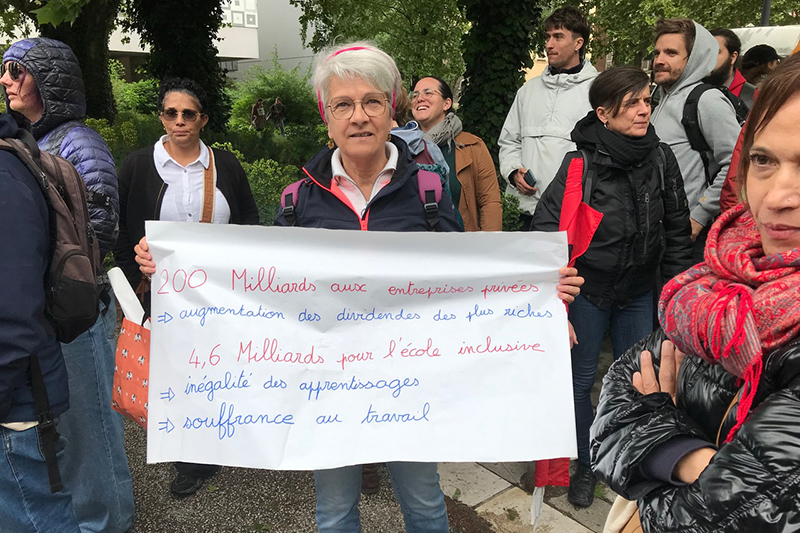 200 Milliards aux entreprises privées
⇒ augmentation des dividendes des plus riches
4,6 Milliards pour l'école inclusive
⇒ inégalité des apprentissages
⇒ souffrance au travail